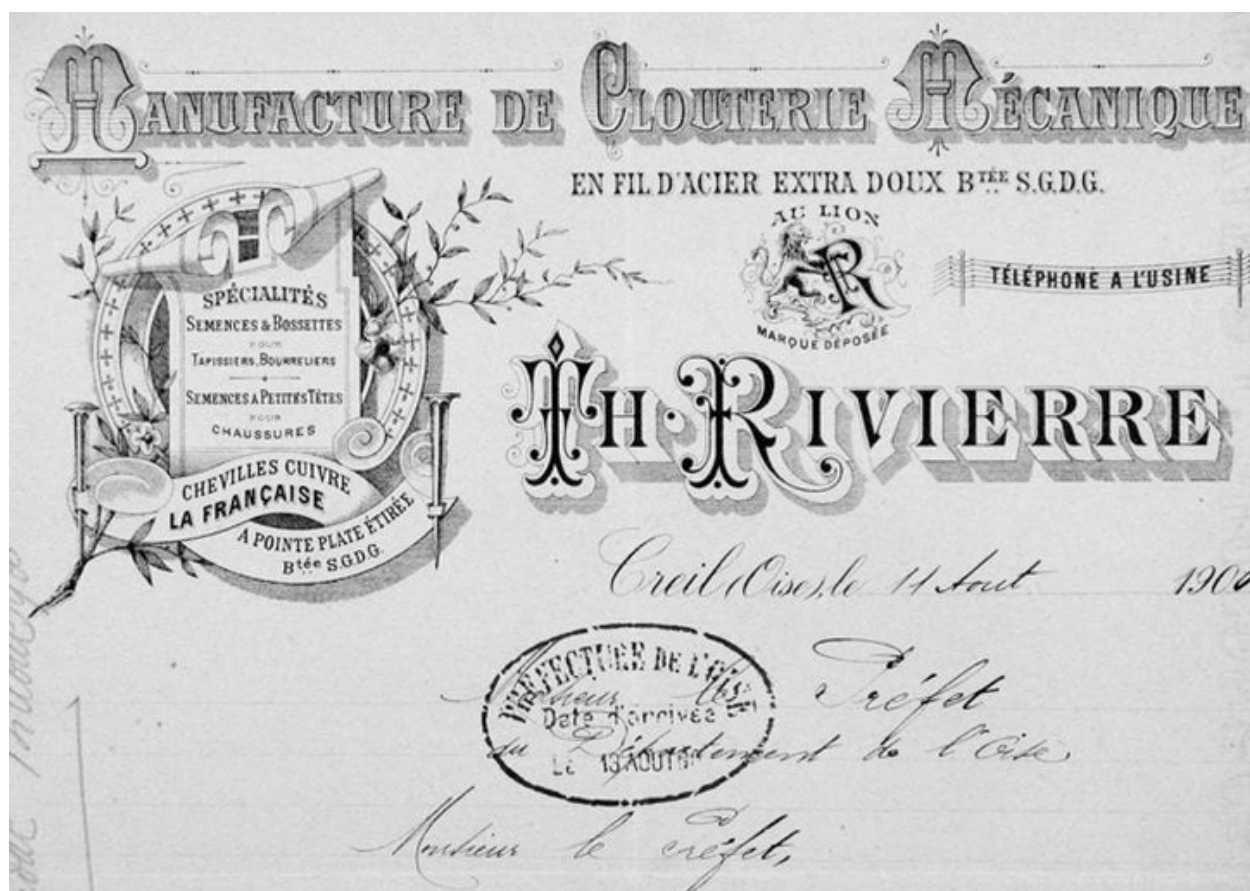 MANUFACTURE DE CLOUTERIE MÉCANIQUE
EN FIL D'ACIER EXTRA DOUX BTÉE S.G.D.G.
AU LION
R
MARQUE DÉPOSÉE
TÉLÉPHONE A L'USINE
SPÉCIALITÉS
SEMENCES & BOSSETTES
POUR
TAPISSIERS, BOURRELIERS
SEMENCES A PETITES TÊTES
POUR
CHAUSSURES
CHEVILLES CUIVRE
LA FRANÇAISE
A POINTE PLATE ÉTIRÉE
Btée S.G.D.G.
TH. RIVIERRE
Creil (Oise), le 11 Aout 190
PRÉFECTURE DE L'OISE
Date d'arrivée
LE 13 AOUT
Monsieur le Préfet
du Département de l'Oise
Monsieur le Préfet,